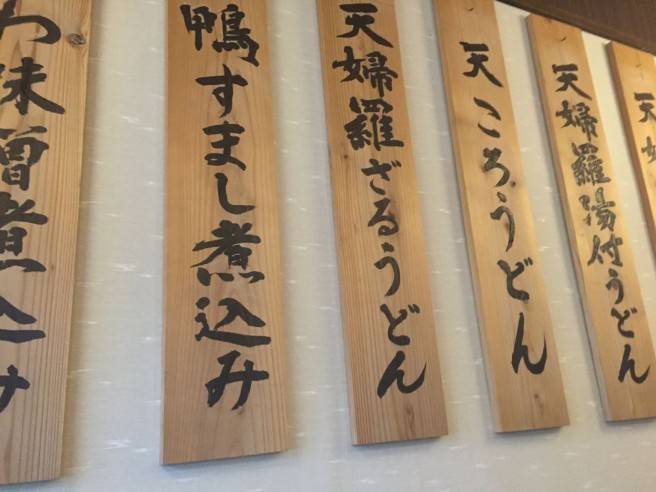 天
天婦羅湯付うどん
天ころうどん
天婦羅ざるうどん
鴨すまし煮込み
わ味噌煮込み